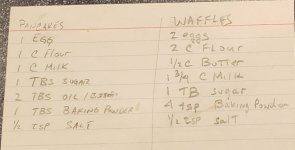 PANCAKES
1 EGG
1 C FLOUR
1 C MILK
1 TBS SUGAR
2 TBS OIL /
1 TBS BAKING POWDER
1/2 TSP SALT
WAFFLES
2 eggs
2 C FLOUR
1/2 C BUTTER
1 3/4 C MILK
1 TB Sugar
4 tsp Baking Powder
1/2 TSP Salt